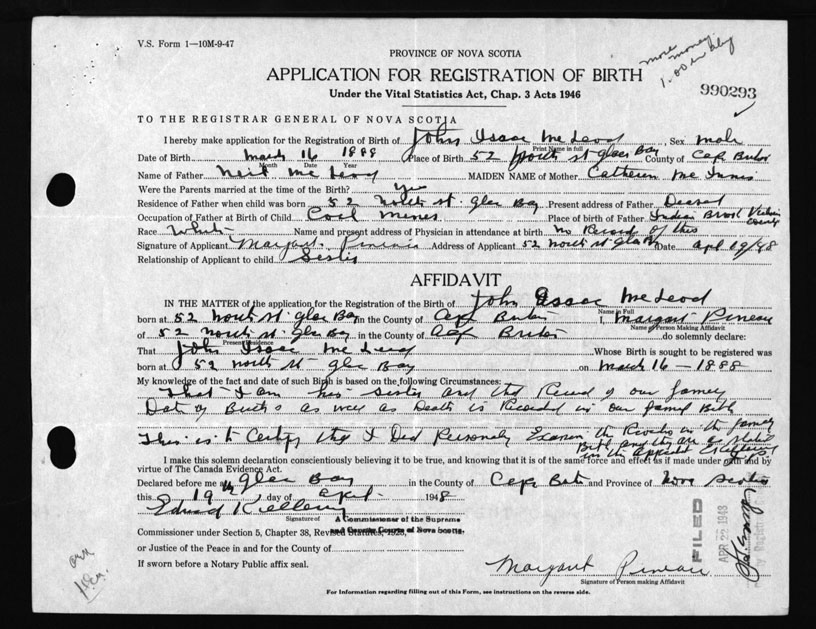 V.S. Form 1—10M-9-47
more money
1.00 in
PROVINCE OF NOVA SCOTIA
APPLICATION FOR REGISTRATION OF BIRTH
990293
Under the Vital Statistics Act, Chap. 3 Acts 1946
TO THE REGISTRAR GENERAL OF NOVA SCOTIA
I hereby make application for the Registration of Birth of John Isaac McLeod, Sex male
Print Name in full
Date of Birth March 16 1888 Place of Birth 52 North St Glace Bay County of Cape Breton
Month Date Year
Name of Father Neil McLeod MAIDEN NAME of Mother Catherin McInnis
Were the Parents married at the time of the Birth? Yes
Residence of Father when child was born 52 North St. Glace Bay Present address of Father Deased
Occupation of Father at Birth of Child Coal Miner Place of birth of Father Indian Brook Victoria County
Race White Name and present address of Physician in attendance at birth No Record of this
Signature of Applicant Margaret Pineau Address of Applicant 52 North St Glace Bay Date Apl 19/48
Relationship of Applicant to child Sister
AFFIDAVIT
IN THE MATTER of the application for the Registration of the Birth of John Isaac McLeod
Name in Full
born at 52 North St. Glace Bay in the County of Cape Breton I, Margaret Pineau
Name of Person Making Affidavit
of 52 North St. Glace Bay in the County of Cape Breton do solemnly declare:
Present Residence
That John Isaac McLeod Whose Birth is sought to be registered was
born at 52 North St Glace Bay on March 16 — 1888
My knowledge of the fact and date of such Birth is based on the following Circumstances:
That I am his sister and the Record of our family
Date of Births as well as Death is Recorded in our family Bible
This is to Certify that I Did Personely Examin the Records in the family
Bible and they are as stated
in the
I make this solemn declaration conscientiously believing it to be true, and knowing that it is of the same force and effect as if made under oath and by
virtue of The Canada Evidence Act.
Declared before me at Glace Bay in the County of Cape Breton and Province of Nova Scotia
this 19th day of April 1948
Signature of A Commissioner of the Supreme
and County Courts of Nova Scotia.
Commissioner under Section 5, Chapter 38, Revised Statutes, 1923,
or Justice of the Peace in and for the County of
If sworn before a Notary Public affix seal.
FILED
APR 22 1948
Margaret Pineau
Signature of Person making Affidavit
For Information regarding filling out of this Form, see instructions on the reverse side.